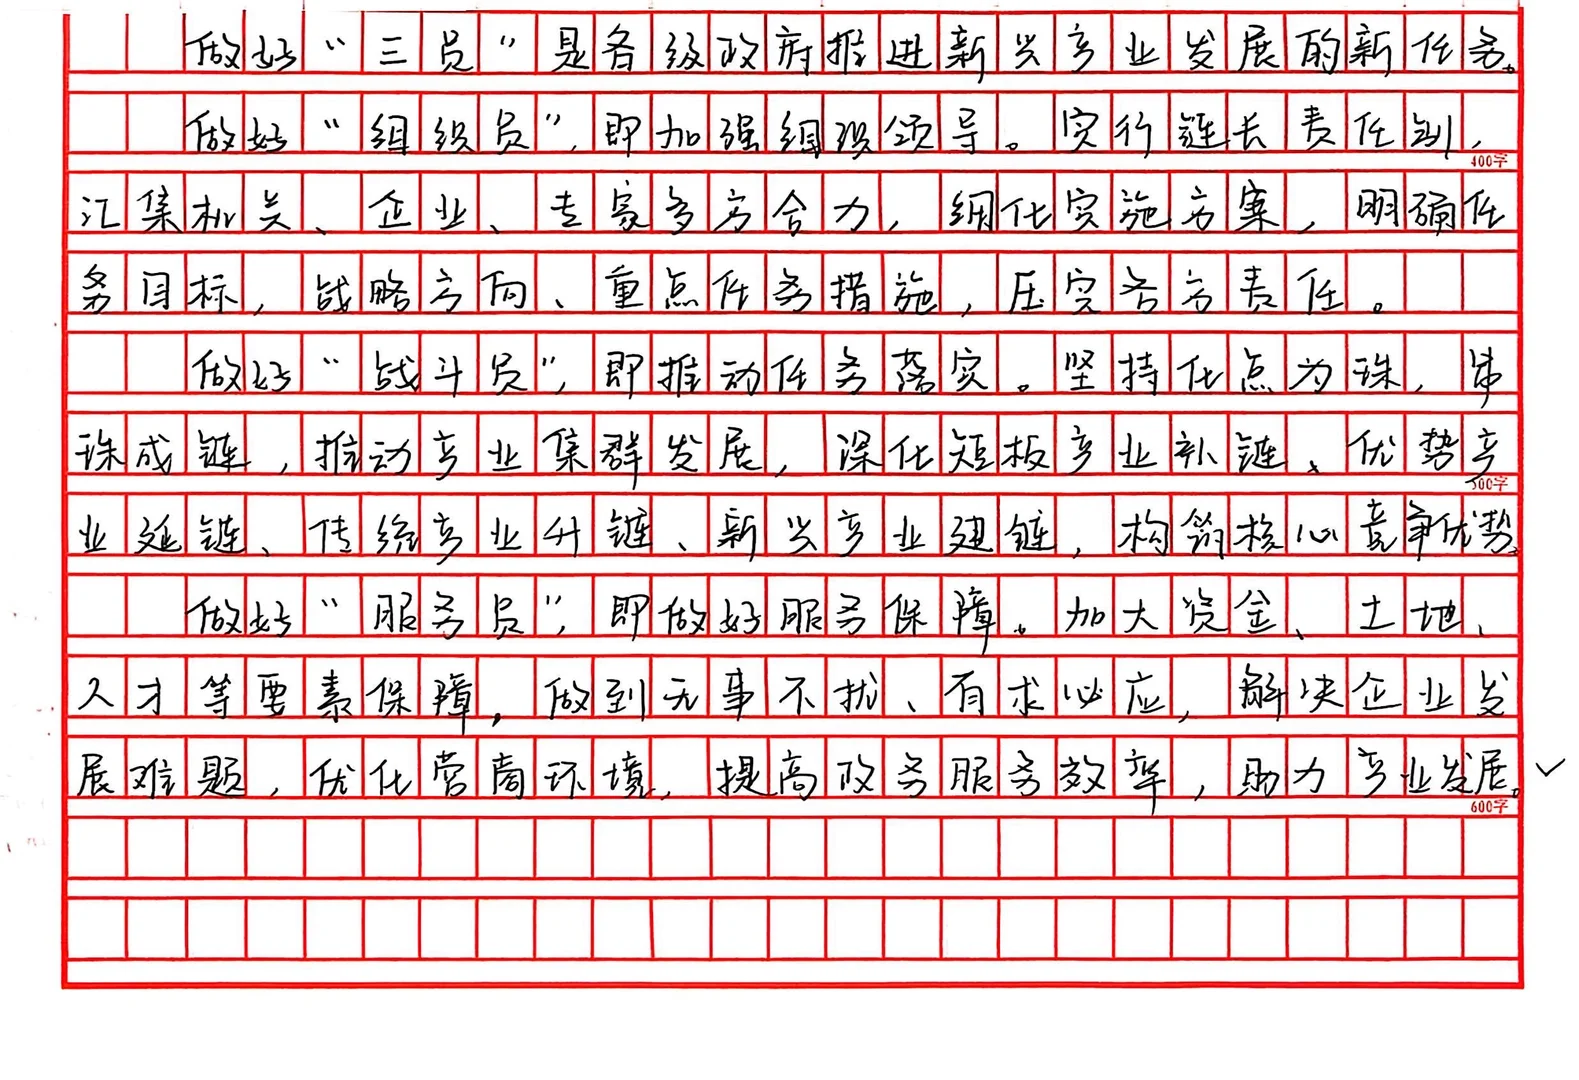 做好“三员”是各级政府推进新兴产业发展的新任务。
做好“组织员”，即加强组织领导。实行链长责任制，
400字
汇集机关、企业、专家多方合力，细化实施方案，明确任
务目标，战略方向、重点任务措施，压实各方责任。
做好“战斗员”，即推动任务落实。坚持化点为珠，串
珠成链，推动产业集群发展，深化短板产业补链、优势产
500字
业延链、传统产业升链、新兴产业建链，构筑核心竞争优势。
做好“服务员”，即做好服务保障。加大资金、土地、
人才等要素保障，做到无事不扰、有求必应，解决企业发
展难题，优化营商环境，提高政务服务效率，助力产业发展。
600字